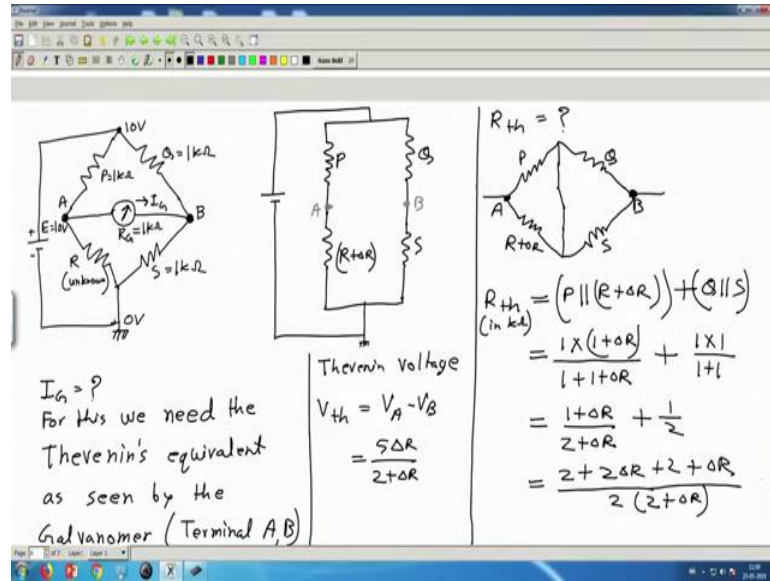 File Edit View Journal Tools Options Help
10V
P=1kΩ
Q=1kΩ
A
→I_G
B
E=10V
R_G=1kΩ
R
(unknown)
S=1kΩ
0V
I_G=?
For this we need the
Thevenin's equivalent
as seen by the
Galvanomer (Terminal A,B)
P
Q
A
B
(R+ΔR)
S
Thevenin voltage
V_th = V_A - V_B
= 5ΔR / 2+ΔR
R_th = ?
P
Q
A
B
R+ΔR
S
R_th = (P||(R+ΔR))+(Q||S)
(in kΩ)
= 1×(1+ΔR) / 1+1+ΔR + 1×1 / 1+1
= 1+ΔR / 2+ΔR + 1/2
= 2+2ΔR+2+ΔR / 2(2+ΔR)
Layer: Layer 1